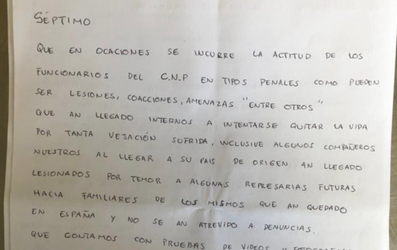 SÉPTIMO
QUE EN OCACIONES SE INCURRE LA ACTITUD DE LOS
FUNCIONARIOS DEL C.N.P EN TIPOS PENALES COMO PUEDEN
SER LESIONES, COACCIONES, AMENAZAS "ENTRE OTROS"
QUE AN LLEGADO INTERNOS A INTENTARSE QUITAR LA VIDA
POR TANTA VEJACIÓN SUFRIDA, INCLUSIVE ALGUNOS COMPAÑEROS
NUESTROS AL LLEGAR A SU PAIS DE ORIGEN AN LLEGADO
LESIONADOS POR TEMOR A ALGUNAS REPRESARIAS FUTURAS
HACIA FAMILIARES DE LOS MISMOS QUE AN QUEDADO
EN ESPAÑA Y NO SE AN ATREVIDO A DENUNCIAS.
QUE CONTAMOS CON PRUEBAS DE VIDEOS Y